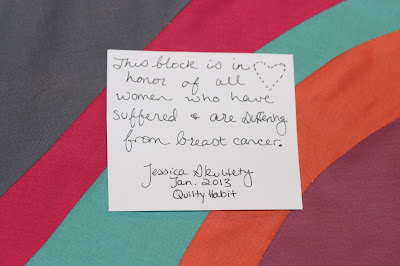 This block is in
honor of all
women who have
suffered & are suffering
from breast cancer.
Jessica Skultety
Jan. 2013
Quilty Habit